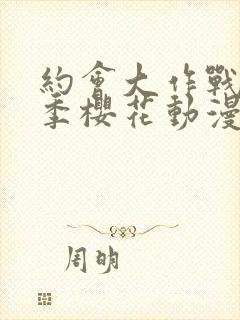 約會大作戰
季櫻花動漫
周明